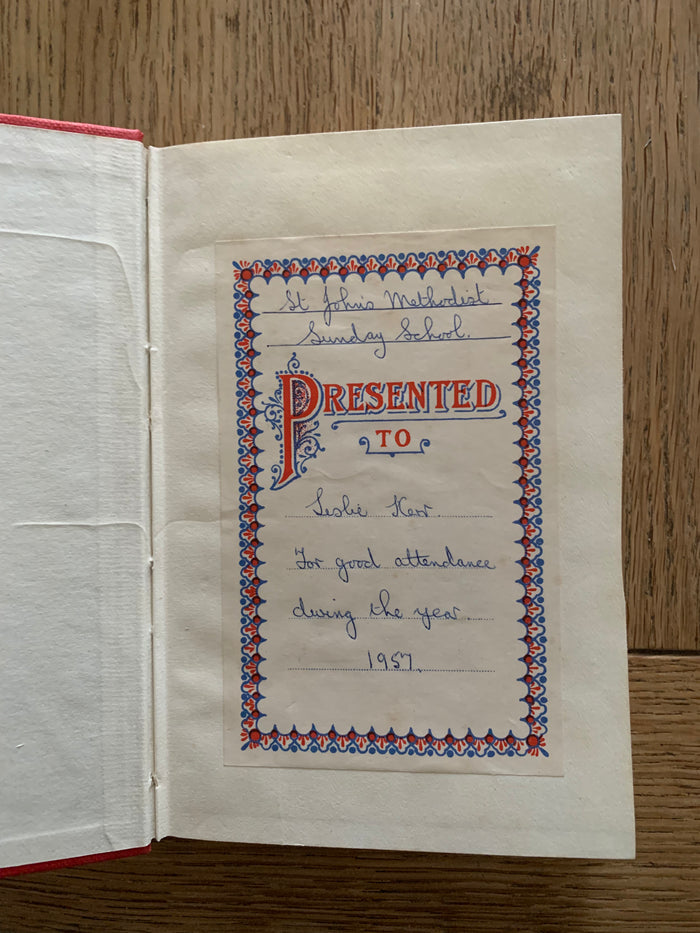 St John's Methodist
Sunday School.
PRESENTED
TO
Leslie Kerr.
For good attendance
during the year
1957.